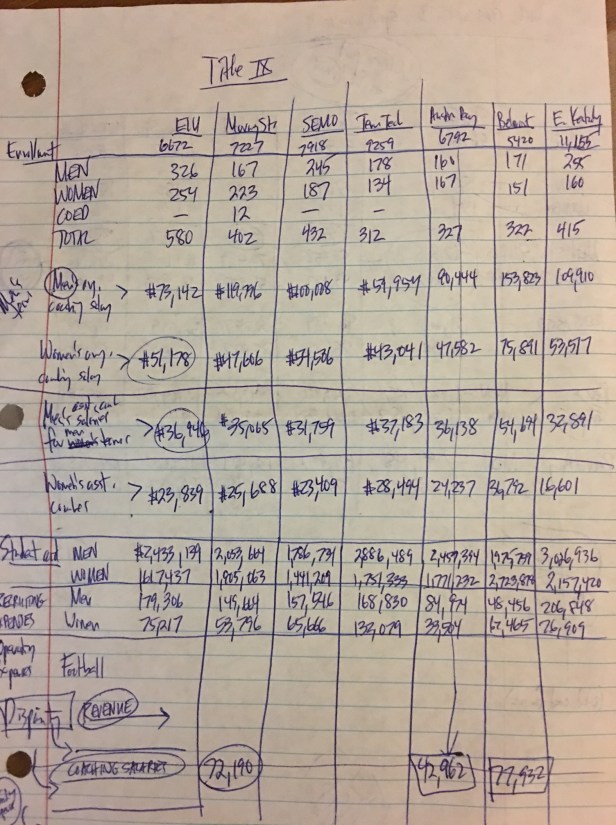 Title IX
EIU Murray St. SEMO Tenn Tech Austin Peay Belmont E. Kentucky
Enrollment 6672 7227 7918 9259 6792 5420 11,155
MEN 326 167 245 178 160 171 255
WOMEN 254 223 187 134 167 151 160
COED — 12 — —
TOTAL 580 402 432 312 327 322 415
Men's avg. > $73,142 $119,796 $100,008 $59,954 90,444 153,823 109,910
coaching salary
Women's avg. > $51,178 $47,606 $54,506 $43,041 47,582 75,891 53,517
coaching salary
Men's asst coach
salaries > $36,946 $35,065 $31,759 $37,183 36,138 54,694 32,891
for men's teams
Women's asst. > $23,839 $25,688 $23,409 $28,494 24,237 36,792 16,601
coaches
Student aid MEN $2,433,139 2,053,664 1,786,731 2,886,489 2,459,344 3,026,936
WOMEN 1,617,437 1,905,063 1,441,209 1,751,333 1,771,232 2,723,879 2,157,420
RECRUITING Men 179,306 149,664 157,546 168,830 84,974 48,456 206,848
EXPENSES Women 75,217 53,796 65,666 132,079 33,504 62,465 76,909
Operating
Expenses Football
Disparity REVENUE
COACHING SALARIES 72,190 42,962 77,932